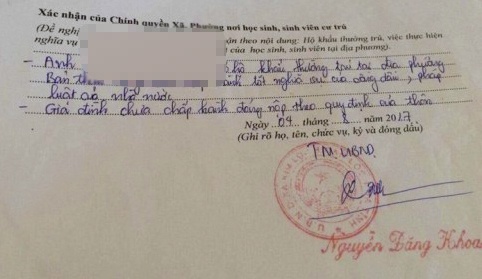 Xác nhận của Chính quyền Xã, Phường nơi học sinh, sinh viên cư trú
(Đề nghị xác nhận theo nội dung: Hộ khẩu thường trú, việc thực hiện
nghĩa vụ của học sinh, sinh viên tại địa phương).
- Anh hộ khẩu thường trú tại địa phương
Bản thân hành tốt nghĩa vụ của công dân, pháp
luật của nhà nước
- Gia đình chưa chấp hành đóng nộp theo quy định của thôn
Ngày 04 tháng 8 năm 2017
(Ghi rõ họ, tên, chức vụ, ký và đóng dấu)
TM. UBND
Nguyễn Đăng Khoa